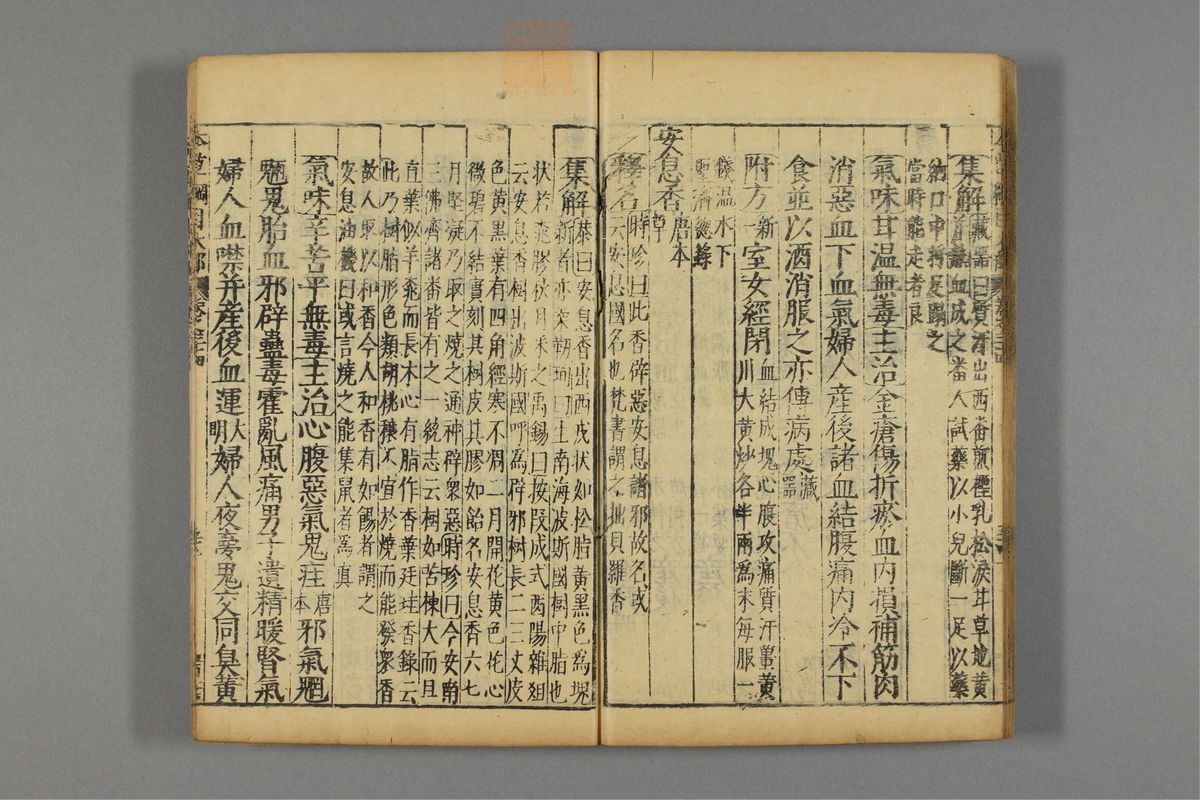 集解藏器曰質汗出西番煎檉乳松淚甘草地黃
并熱血成之番人試藥以小兒斷一足以藥
納口中將足蹋之
當時能走者良
氣味甘溫無毒主治金瘡傷折瘀血內損補筋肉
消惡血下血氣婦人產後諸血結腹痛內冷不下
食並以酒消服之亦傅病處藏器
附方新一室女經閉血結成塊心腹攻痛質汗薑黃
川大黃炒各半兩為末每服一
錢溫水下
聖濟總錄
安息香唐本草
釋名時珍曰此香辟惡安息諸邪故名或
云安息國名也梵書謂之拙貝羅香
集解恭曰安息香出西戎狀如松脂黃黑色為塊
新者亦柔韌珣曰生南海波斯國樹中脂也
狀若桃膠秋月采之禹錫曰按段成式酉陽雜俎
云安息香樹出波斯國呼為辟邪樹長二三丈皮
色黃黑葉有四角經寒不凋二月開花黃色花心
微碧不結實刻其樹皮其膠如飴名安息香六七
月堅凝乃取之燒之通神辟衆惡時珍曰今安南
三佛齊諸番皆有之一統志云樹如苦棟大而且
直葉似羊桃而長木心有脂作香葉廷珪香錄云
此乃樹脂形色類胡桃穰不宜於燒而能發衆香
故人取以和香今人和香有如餳者謂之
安息油機曰或言燒之能集鼠者為真
氣味辛苦平無毒主治心腹惡氣鬼疰唐本邪氣魍
魎鬼胎血邪辟蠱毒霍亂風痛男子遺精暖腎氣
婦人血噤并產後血運大明婦人夜夢鬼交同臭黃